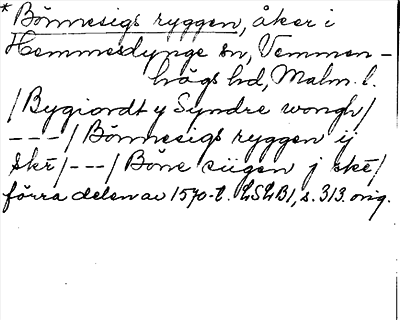 * Bönnesigs ryggen, åker i
Hemmesdynge sn, Vemmen-
högs hd, Malm. l.
/Bygiordt y Syndre wongh/
---/Bönnesigs ryggen ij
Skr̄/---/Böne siigen j skē/
förra delen av 1570-t. LSLB1, s. 313. orig.